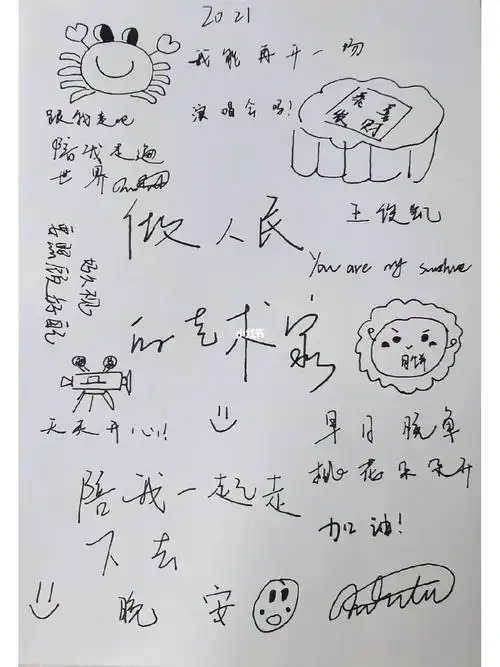 2021
我能再开一场
演唱会吗！
恭喜
发财
跟我走吧
陪我走遍
世界
做人民
王俊凯
要照顾好自己
好久不见
You are my sunshine
的艺术家
小红书
月饼
天天开心!!
早日脱单
桃花朵朵开
加油！
陪我一起走
下去
晚安